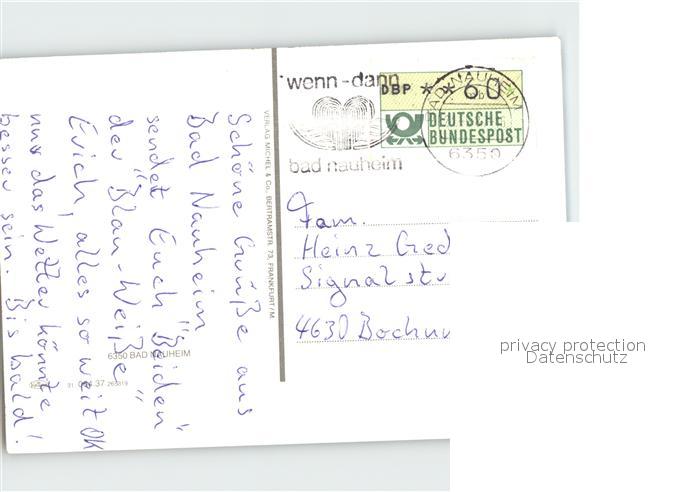 Schöne Grüße aus
Bad Nauheim
sendet Euch "Beiden"
der "Blau-Weiße"
Erich, alles soweit OK
nur das Wetter könnte
besser sein. Bis bald!
VERLAG MICHEL & CO., BERTRAMSTR. 73, FRANKFURT/M.
6350 BAD NAUHEIM
wenn-dann
bad nauheim
DBP * * 60
DEUTSCHE
BUNDESPOST
BAD NAUHEIM
6350
Fam.
Heinz
Signalstr
4630 Bochum
privacy protection
Datenschutz